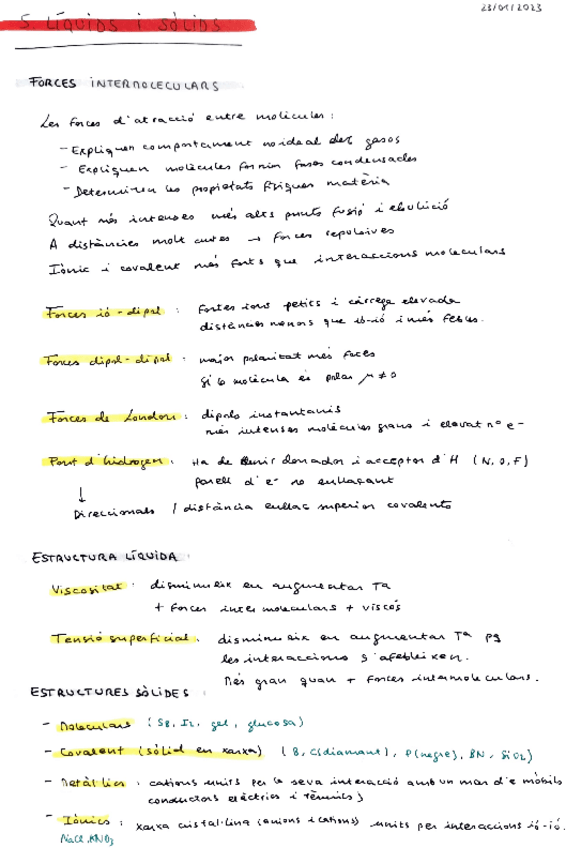 23/01/2023
5. Líquids i sòlids
FORCES INTERMOLECULARS
Les forces d'atracció entre molècules:
- Expliquen comportament no ideal dels gasos
- Expliquen molècules formin fases condensades
- Determinen les propietats físiques matèria
Quant més intenses més alts punts fusió i ebullició
A distàncies molt curtes → forces repulsives
Iònic i covalent més forts que interaccions moleculars
Forces ió-dipol: fortes ions petits i càrrega elevada
distàncies menors que ió-ió i més febles.
Forces dipol-dipol: major polaritat més forces
Si la molècula és polar μ ≠ 0
Forces de London: dipols instantanis
més intenses molècules grans i elevat nº e-
Pont d'hidrogen: Ha de tenir donador i acceptor d'H (N, O, F)
parell d'e- no enllaçant
↓
Direccionals / distància enllaç superior covalents
ESTRUCTURA LÍQUIDA:
Viscositat: disminueix en augmentar Tª
+ forces intermoleculars + viscós
Tensió superficial: disminueix en augmentar Tª pq
les interaccions s'afebleixen.
Més gran quan + forces intermoleculars.
ESTRUCTURES SÒLIDES:
- Moleculars (S8, I2, gel, glucosa)
- Covalent (sòlid en xarxa) (B, C(diamant), P(negre), BN, SiO2)
- Metàl·lics: cations units per la seva interacció amb un mar d'e- mòbils
conductors elèctrics i tèrmics)
- Iònics: xarxa cristal·lina (anions i cations) units per interaccions ió-ió.
NaCl, KNO3